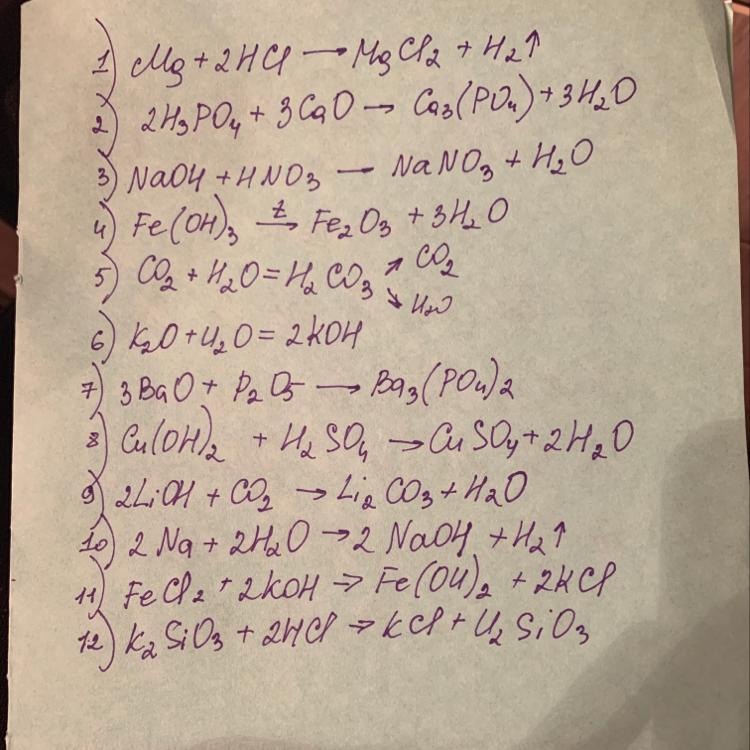 1) Mg + 2HCl → MgCl2 + H2↑
2) 2H3PO4 + 3CaO → Ca3(PO4) + 3H2O
3) NaOH + HNO3 — NaNO3 + H2O
4) Fe(OH)3 t→ Fe2O3 + 3H2O
5) CO2 + H2O = H2CO3 ↗ CO2
↘ H2O
6) K2O + H2O = 2KOH
7) 3BaO + P2O5 → Ba3(PO4)2
8) Cu(OH)2 + H2SO4 → CuSO4 + 2H2O
9) 2LiOH + CO2 → Li2CO3 + H2O
10) 2Na + 2H2O → 2NaOH + H2↑
11) FeCl2 + 2KOH ⇒ Fe(OH)2 + 2KCl
12) K2SiO3 + 2HCl ⇒ KCl + H2SiO3